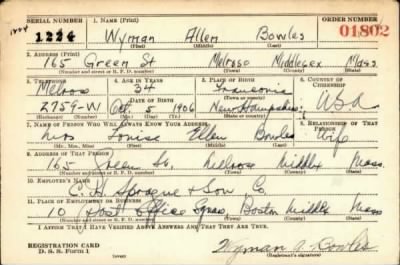 SERIAL NUMBER 1. NAME (Print) ORDER NUMBER
1404 1224 Wyman Allen Bowles 01802
(First) (Middle) (Last)
2. ADDRESS (Print)
165 Green St Melrose Middlesex Mass.
(Number and street or R. F. D. number) (Town) (County) (State)
3. TELEPHONE 4. AGE IN YEARS 5. PLACE OF BIRTH 6. COUNTRY OF CITIZENSHIP
Melrose 34 Franconia
DATE OF BIRTH (Town or county)
2759-W Oct 5 1906 New Hampshire USA
(Exchange) (Number) (Mo.) (Day) (Yr.) (State or country)
7. NAME OF PERSON WHO WILL ALWAYS KNOW YOUR ADDRESS 8. RELATIONSHIP OF THAT PERSON
Mrs Louise Ellen Bowles Wife
(Mr., Mrs., Miss) (First) (Middle) (Last)
9. ADDRESS OF THAT PERSON
165 Green St. Melrose Middlx Mass.
(Number and street or R. F. D. number) (Town) (County) (State)
10. EMPLOYER'S NAME
C. H. Sprague & Son Co.
11. PLACE OF EMPLOYMENT OR BUSINESS
10 Post Office Sqre Boston Middlx Mass
(Number and street or R. F. D. number) (Town) (County) (State)
I AFFIRM THAT I HAVE VERIFIED ABOVE ANSWERS AND THAT THEY ARE TRUE.
REGISTRATION CARD
D. S. S. Form 1 (over) Wyman A. Bowles